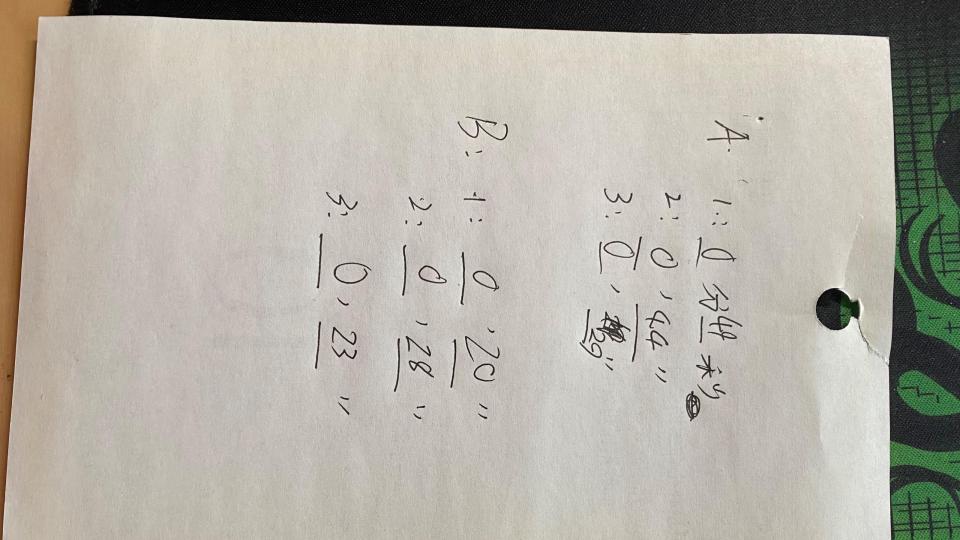 A. 1: 0分44秒
2: 0'44"
3: 0'29"
B: 1: 0'20"
2: 0'28"
3: 0'23"